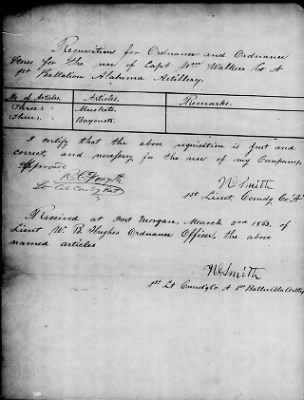 Requisition for Ordnance and Ordnance
Stores for the use of Capt Wm Walkers Co A
1st Battalion Alabama Artillery.
No of Articles. Articles. Remarks.
Three Muskets
Three Bayonets
I certify that the above requisition is just and
correct, and necessary for the use of my Company,
Approved
N Smith
Lt Col Comdg
1st Lieut, Comdg Co "A"
Received at Fort Morgan, March 3rd 1863, of
Lieut W. B. Hughes Ordnance Officer, the above
named articles
N Smith
1st Lt Comdg Co A 1st Batta Ala Arty